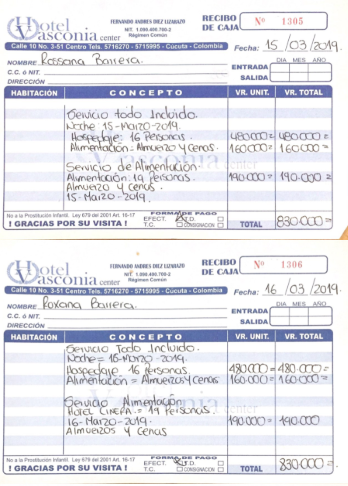 Hotel
Vasconia center
FERNANDO ANDRES DIEZ LUZARAZO
NIT. 1.090.400.760-2
Régimen Común
RECIBO
DE CAJA
Nº 1305
Calle 10 No. 3-51 Centro Tels. 5716270 - 5715995 - Cucuta - Colombia
Fecha: 15/03/2019.
NOMBRE Rossana Barrera.
C.C. ó NIT.
DIRECCIÓN
DIA MES AÑO
ENTRADA
SALIDA
HABITACIÓN CONCEPTO VR. UNIT. VR. TOTAL
Servicio todo Incluido.
Noche 15-Marzo-2019.
Hospedaje: 16 Personas. 480.000= 480.000=
Alimentación= Almuerzo y Cenas. 160.000= 160.000=
Servicio de Alimentación.
Alimentación: 19 Personas. 190.000= 190.000=
Almuerzo y Cenas.
15-Marzo-2019.
No a la Prostitución Infantil. Ley 679 del 2001 Art. 16-17
! GRACIAS POR SU VISITA !
FORMA DE PAGO
EFECT. T.D.
T.C. CONSIGNACION
TOTAL 830.000=
Hotel
Vasconia center
FERNANDO ANDRES DIEZ LUZARAZO
NIT. 1.090.400.760-2
Régimen Común
RECIBO
DE CAJA
Nº 1306
Calle 10 No. 3-51 Centro Tels. 5716270 - 5715995 - Cucuta - Colombia
Fecha: 16/03/2019.
NOMBRE Roxana Barrera.
C.C. ó NIT.
DIRECCIÓN
DIA MES AÑO
ENTRADA
SALIDA
HABITACIÓN CONCEPTO VR. UNIT. VR. TOTAL
Servicio Todo Incluido.
Noche= 16-Marzo-2019.
Hospedaje 16 Personas. 480.000= 480.000=
Alimentación = Almuerzos y Cenas 160.000= 160.000=
Servicio Alimentación
= 19 Personas. 190.000= 190.000
16-Marzo-2019.
Almuerzos y Cenas
No a la Prostitución Infantil. Ley 679 del 2001 Art. 16-17
! GRACIAS POR SU VISITA !
FORMA DE PAGO
EFECT. T.D.
T.C. CONSIGNACION
TOTAL 830.000=